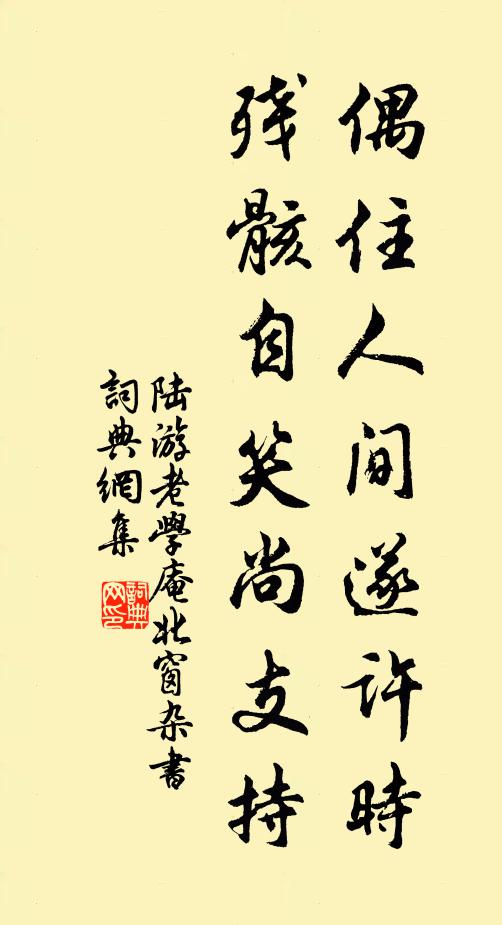 偶住人间遂许時
残骸自笑尚支持
陆游老學庵北窗杂書
詞典網集
詞典网印